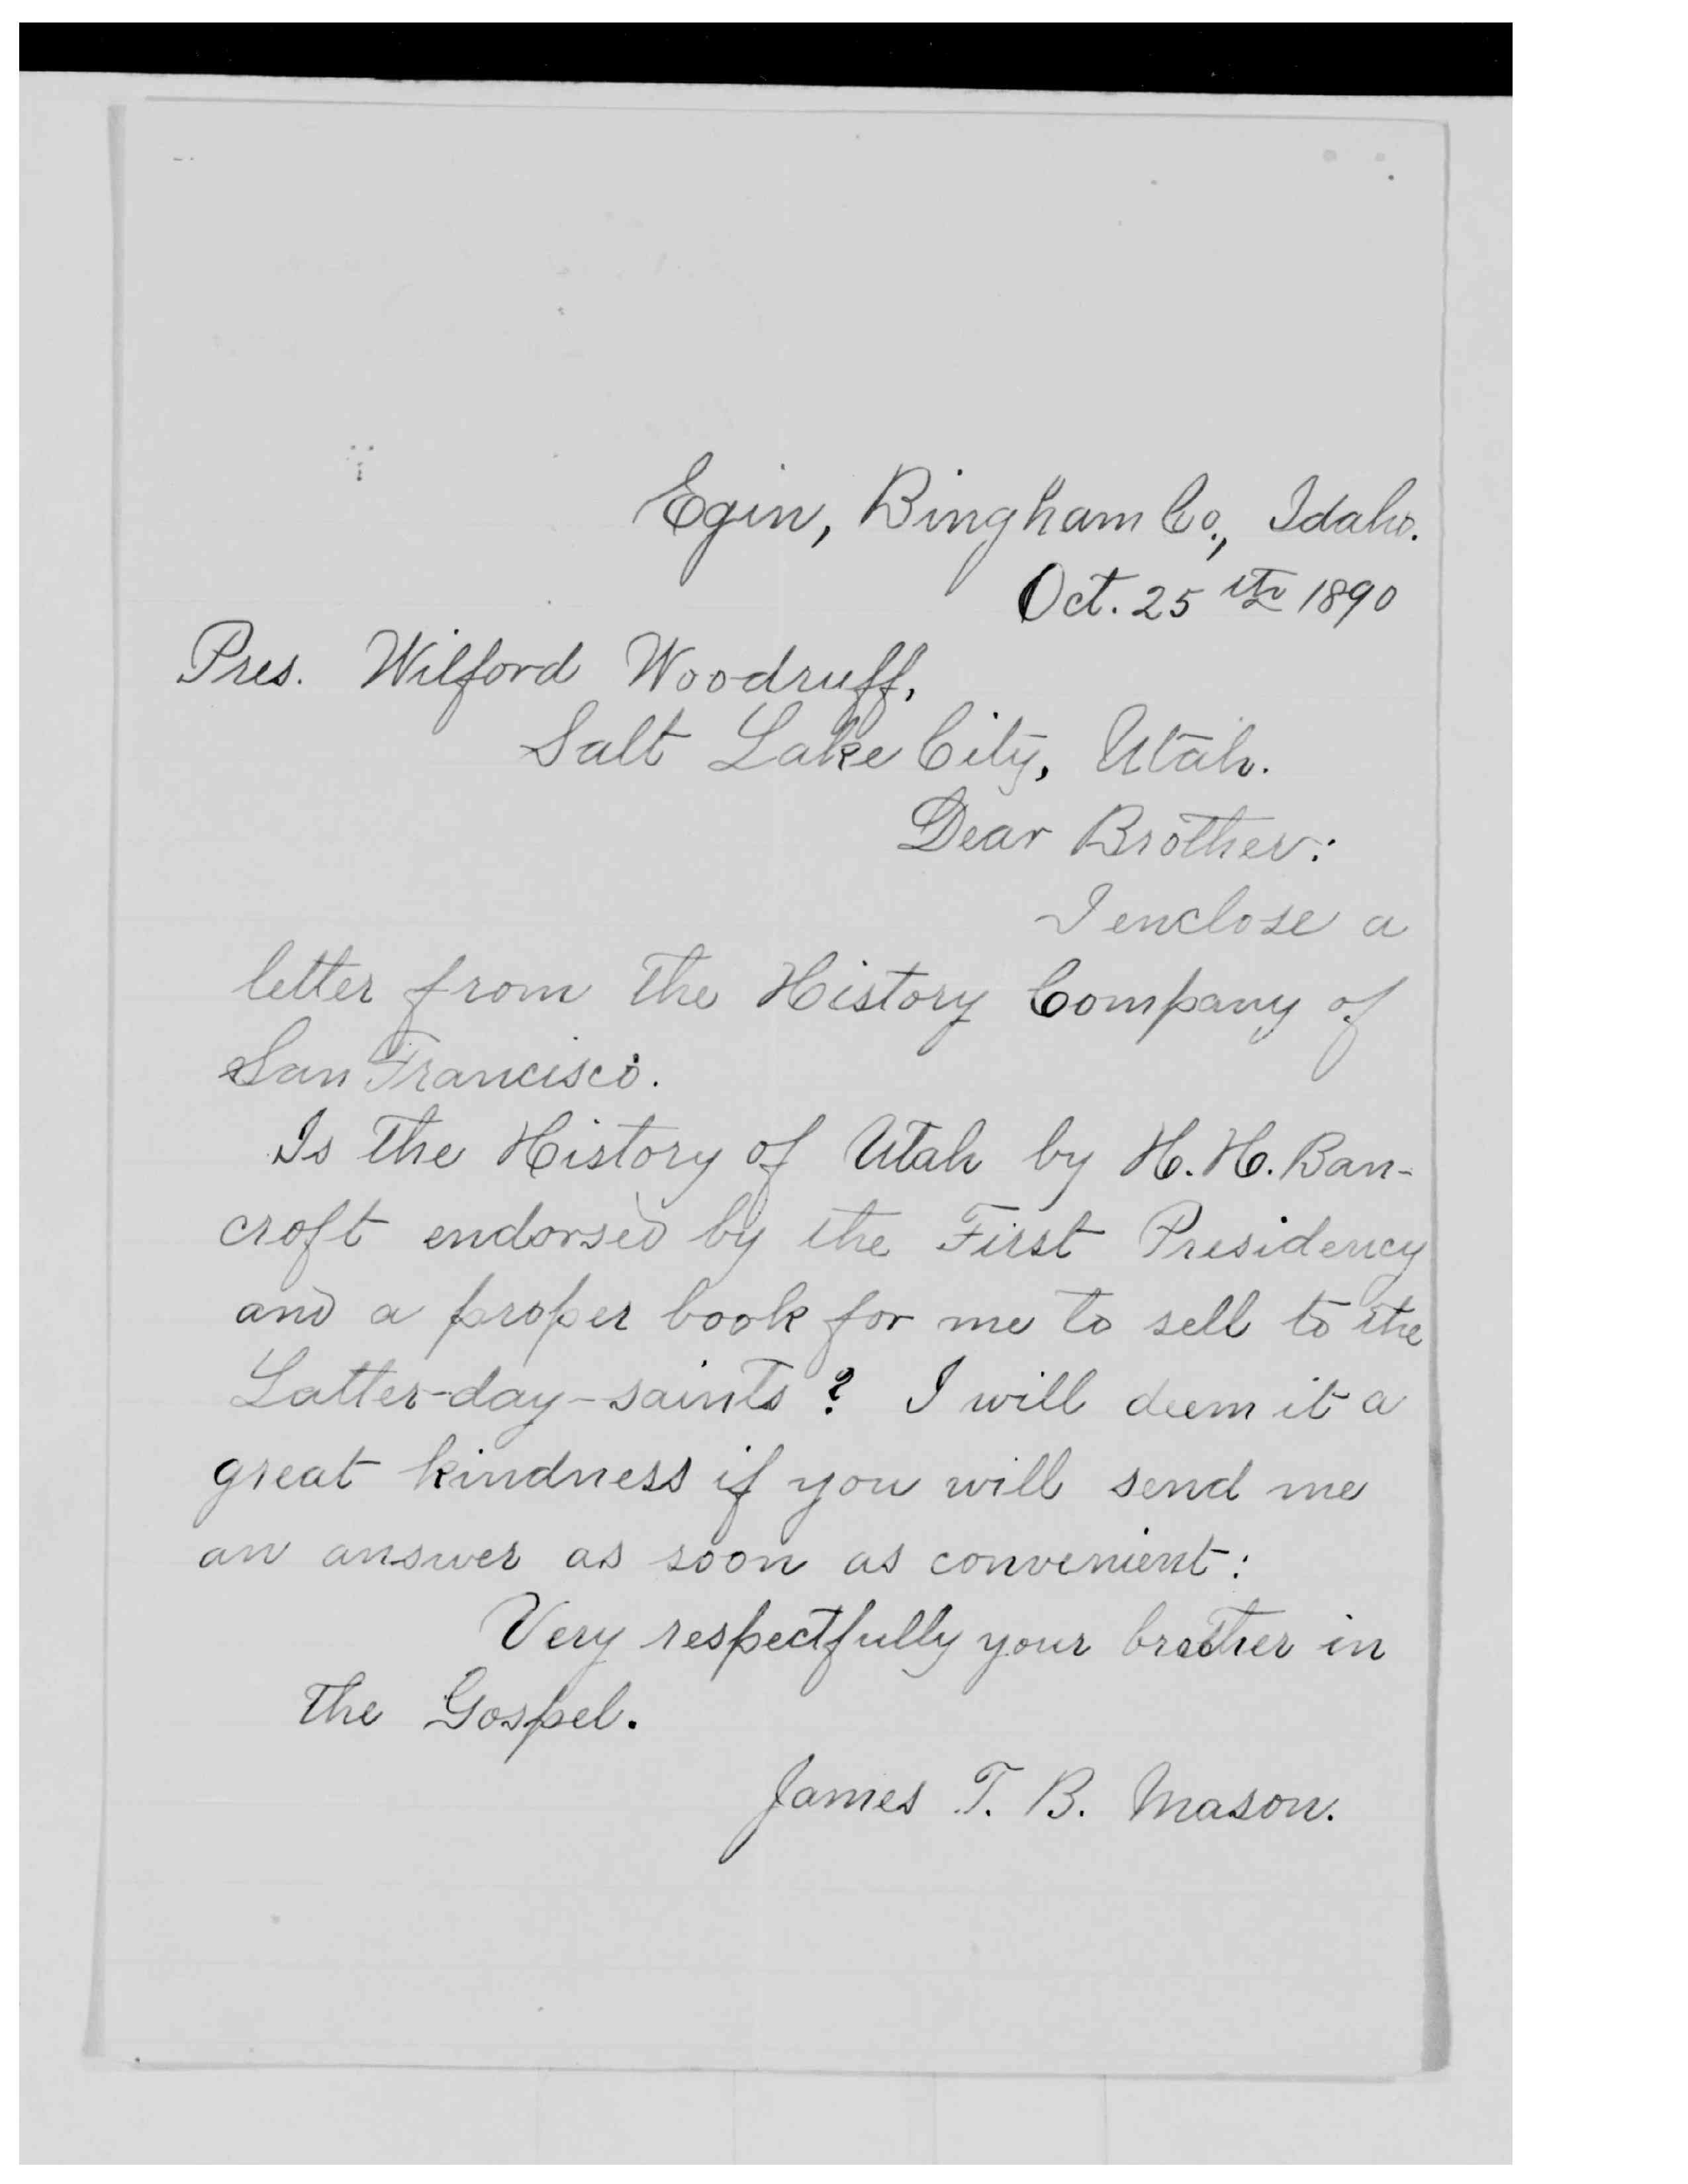 Egin, Bingham Co., Idaho.
Oct. 25th 1890
Pres. Wilford Woodruff,
Salt Lake City, Utah.
Dear Brother:
I enclose a
letter from the History Company of
San Francisco.
Is the History of Utah by H. H. Ban-
croft endorsed by the First Presidency
and a proper book for me to sell to the
Latter-day-saints? I will deem it a
great kindness if you will send me
an answer as soon as convenient:
Very respectfully your brother in
the Gospel.
James T. B. Mason.